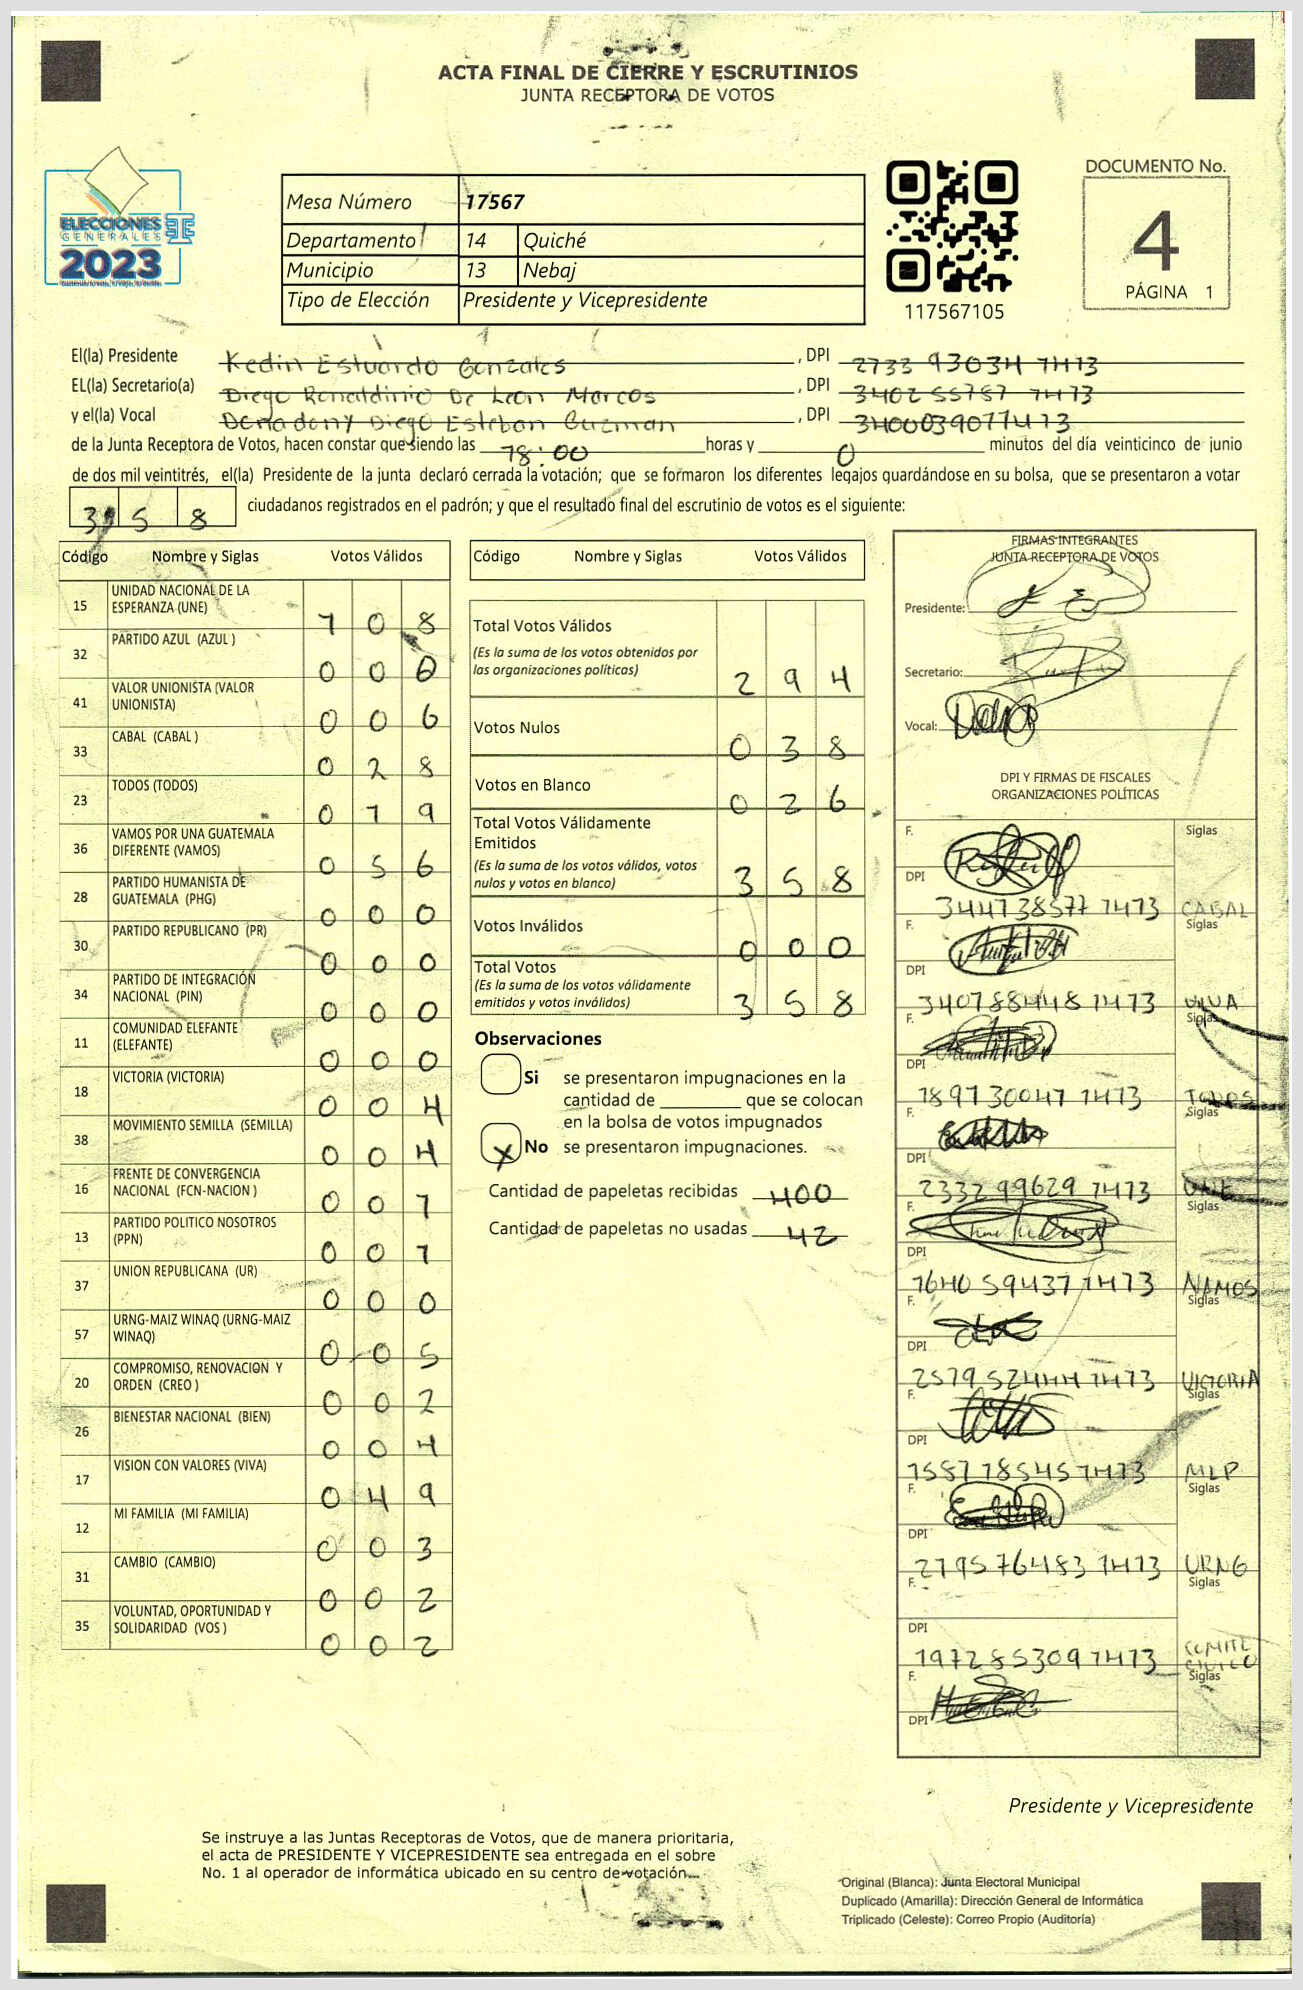 ACTA FINAL DE CIERRE Y ESCRUTINIOS
JUNTA RECEPTORA DE VOTOS
ELECCIONES
GENERALES
2023
Mesa Número 17567
Departamento 14 Quiché
Municipio 13 Nebaj
Tipo de Elección Presidente y Vicepresidente
117567105
DOCUMENTO No.
4
PÁGINA 1
El(la) Presidente Kedin Estuardo Gonzales, DPI 2733 93034 1413
EL(la) Secretario(a) Diego Ronaldinio De Leon Marcos, DPI 3402 55787 1413
y el(la) Vocal Diego Esteban Guzman, DPI 3400039071413
de la Junta Receptora de Votos, hacen constar que siendo las 18:00 horas y 0 minutos del día veinticinco de junio
de dos mil veintitrés, el(la) Presidente de la junta declaró cerrada la votación; que se formaron los diferentes legajos guardándose en su bolsa, que se presentaron a votar
3 5 8 ciudadanos registrados en el padrón; y que el resultado final del escrutinio de votos es el siguiente:
Código Nombre y Siglas Votos Válidos
15 UNIDAD NACIONAL DE LA ESPERANZA (UNE) 1 0 8
32 PARTIDO AZUL (AZUL ) 0 0 0
41 VALOR UNIONISTA (VALOR UNIONISTA) 0 0 6
33 CABAL (CABAL ) 0 2 8
23 TODOS (TODOS) 0 1 9
36 VAMOS POR UNA GUATEMALA DIFERENTE (VAMOS) 0 5 6
28 PARTIDO HUMANISTA DE GUATEMALA (PHG) 0 0 0
30 PARTIDO REPUBLICANO (PR) 0 0 0
34 PARTIDO DE INTEGRACIÓN NACIONAL (PIN) 0 0 0
11 COMUNIDAD ELEFANTE (ELEFANTE) 0 0 0
18 VICTORIA (VICTORIA) 0 0 4
38 MOVIMIENTO SEMILLA (SEMILLA) 0 0 4
16 FRENTE DE CONVERGENCIA NACIONAL (FCN-NACION ) 0 0 1
13 PARTIDO POLITICO NOSOTROS (PPN) 0 0 1
37 UNION REPUBLICANA (UR) 0 0 0
57 URNG-MAIZ WINAQ (URNG-MAIZ WINAQ) 0 0 5
20 COMPROMISO, RENOVACION Y ORDEN (CREO ) 0 0 2
26 BIENESTAR NACIONAL (BIEN) 0 0 4
17 VISION CON VALORES (VIVA) 0 4 9
12 MI FAMILIA (MI FAMILIA) 0 0 3
31 CAMBIO (CAMBIO) 0 0 2
35 VOLUNTAD, OPORTUNIDAD Y SOLIDARIDAD (VOS ) 0 0 2
Código Nombre y Siglas Votos Válidos
Total Votos Válidos 2 9 4
(Es la suma de los votos obtenidos por
las organizaciones políticas)
Votos Nulos 0 3 8
Votos en Blanco 0 2 6
Total Votos Válidamente
Emitidos
(Es la suma de los votos válidos, votos
nulos y votos en blanco) 3 5 8
Votos Inválidos 0 0 0
Total Votos
(Es la suma de los votos válidamente
emitidos y votos inválidos) 3 5 8
Observaciones
Si se presentaron impugnaciones en la
cantidad de ________ que se colocan
en la bolsa de votos impugnados
X No se presentaron impugnaciones.
Cantidad de papeletas recibidas 400
Cantidad de papeletas no usadas 42
FIRMAS INTEGRANTES
JUNTA RECEPTORA DE VOTOS
Presidente:
Secretario:
Vocal:
DPI Y FIRMAS DE FISCALES
ORGANIZACIONES POLÍTICAS
F. Siglas
DPI 3447 38577 1413 CABAL
F. Siglas
DPI 3407 88448 1413 VIVA
F. Siglas
DPI 1897 30047 1413 TODOS
F. Siglas
DPI 2332 99629 1413 UNE
F. Siglas
DPI 1640 59437 1413 VAMOS
F. Siglas
DPI 2579 52444 1413 VICTORIA
F. Siglas
DPI 1587 78545 1413 MLP
F. Siglas
DPI 2795 76483 1413 URNG
F. Siglas
DPI 1972 85309 1413 COMITE CIVICO
F. Siglas
DPI
Presidente y Vicepresidente
Se instruye a las Juntas Receptoras de Votos, que de manera prioritaria,
el acta de PRESIDENTE Y VICEPRESIDENTE sea entregada en el sobre
No. 1 al operador de informática ubicado en su centro de votación.
Original (Blanca): Junta Electoral Municipal
Duplicado (Amarilla): Dirección General de Informática
Triplicado (Celeste): Correo Propio (Auditoría)